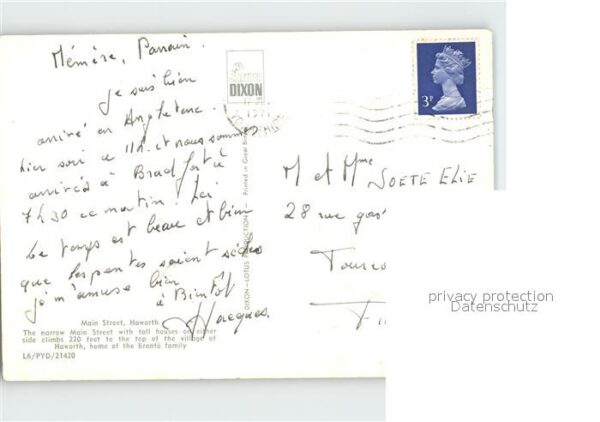 Mémère, Parrain.
je suis bien
arrivé en Angleterre
hier soir à 11h et nous sommes
arrivés à Bradford à
7h30 ce matin. Ici
Le temps est beau et bien
que les pentes soient
je m'amuse bien
à Bientôt
Jacques.
DIXON
3P
DIXON-LOTUS PRODUCTION
Printed in Great
M et Mme SOETE ELIE
28 rue
Tourco
privacy protection
Datenschutz
Main Street, Haworth
The narrow Main Street with tall houses on either
side climbs 220 feet to the top of the village of
Haworth, home of the Brontë family
L6/PYD/21420